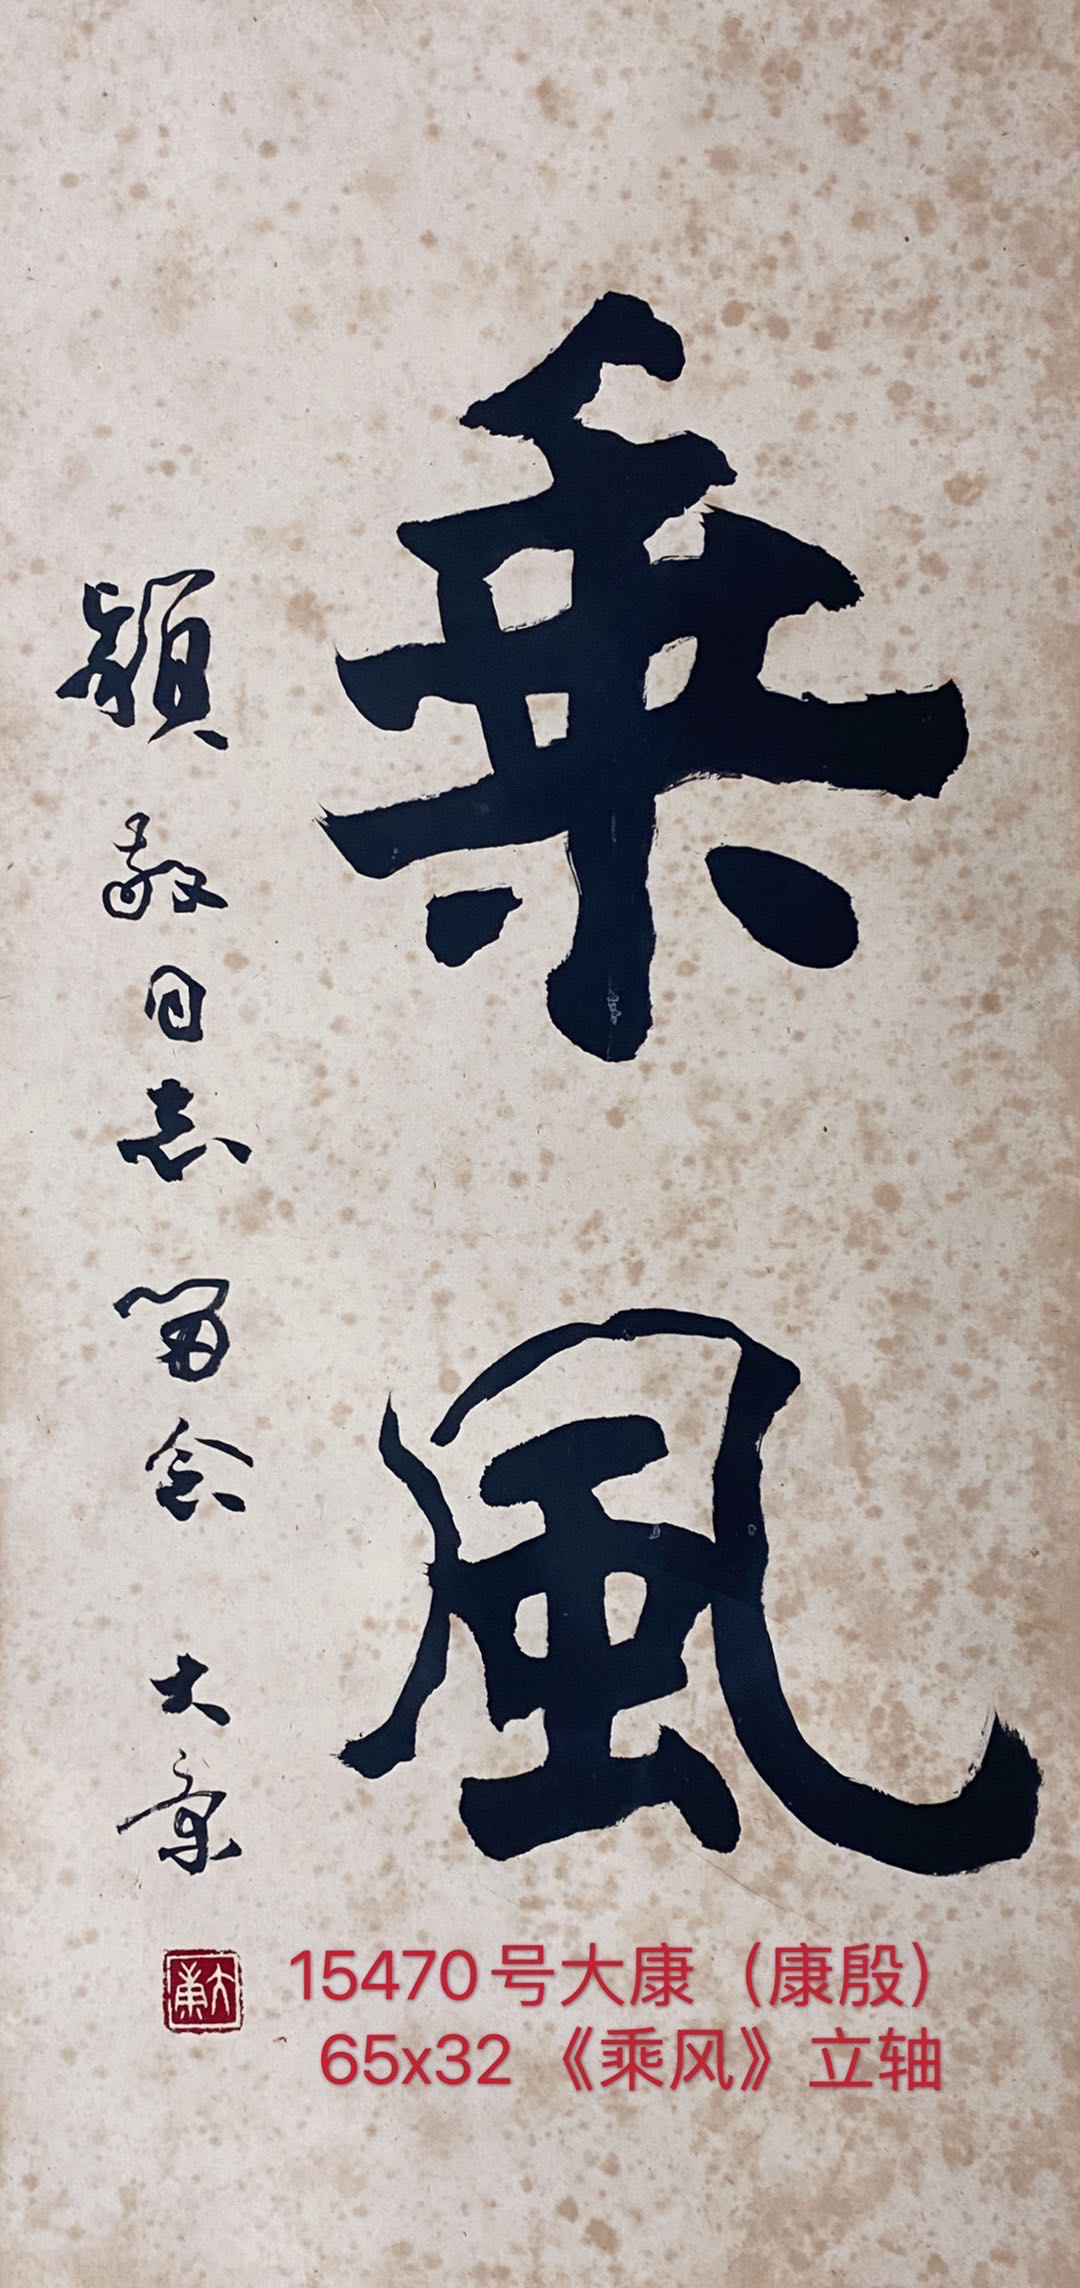 乘風
敬同志留念 大康
大康
15470号大康（康殷）
65x32《乘风》立轴